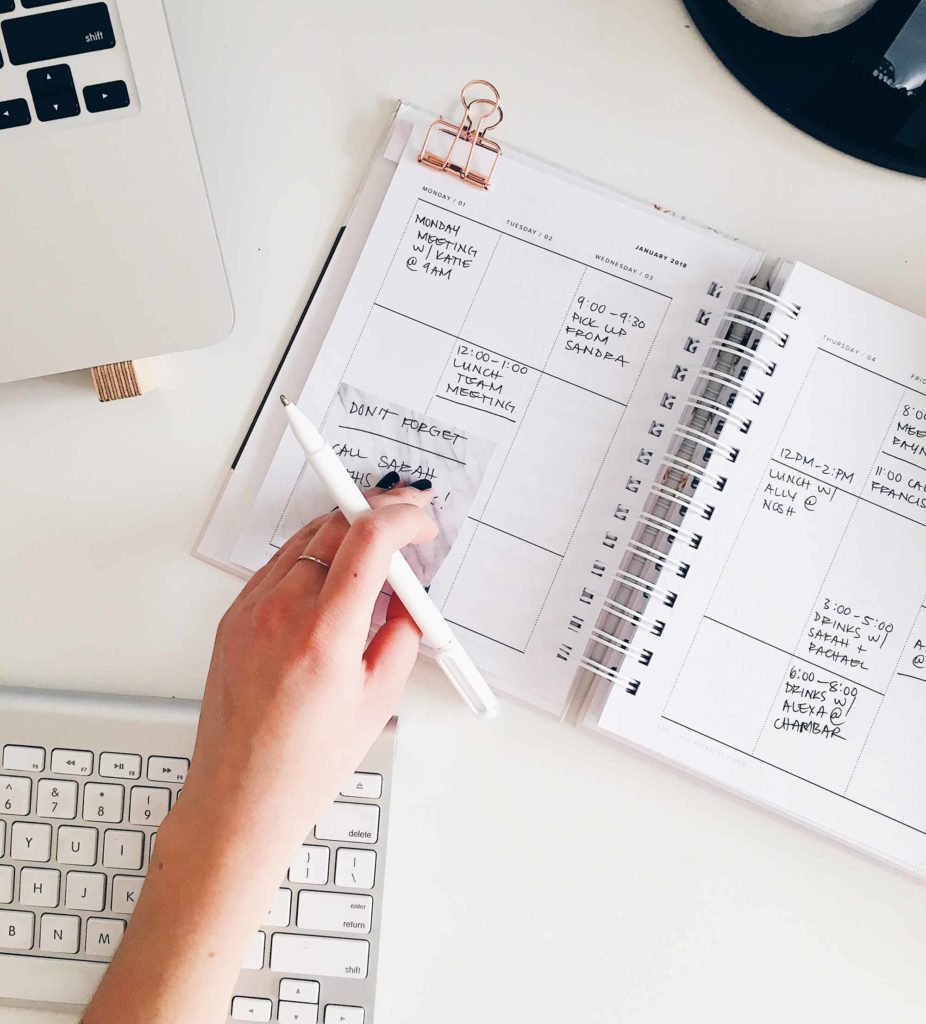 shift
MONDAY / 01
MONDAY
MEETING
W/ KATIE
@ 9AM
DON'T FORGET
CALL SARAH
THIS !
TUESDAY / 02
12:00-1:00
LUNCH
TEAM
MEETING
JANUARY 2018
WEDNESDAY / 03
9:00-9:30
PICK UP
FROM
SANDRA
THURSDAY / 04
12PM-2PM
LUNCH W/
ALLY @
NOSH
FRI
8:0
MEE
RAYN
11:00 CAL
FRANCIS
3:00-5:00
DRINKS W/
SARAH +
RACHAEL
6:00-8:00
DRINKS W/
ALEXA @
CHAMBAR
A
@
F6 F7 F8 F9
^ & * (
6 7 8 9
delete
Y U I
} |
] \
H J K
enter
return
B N M
shift